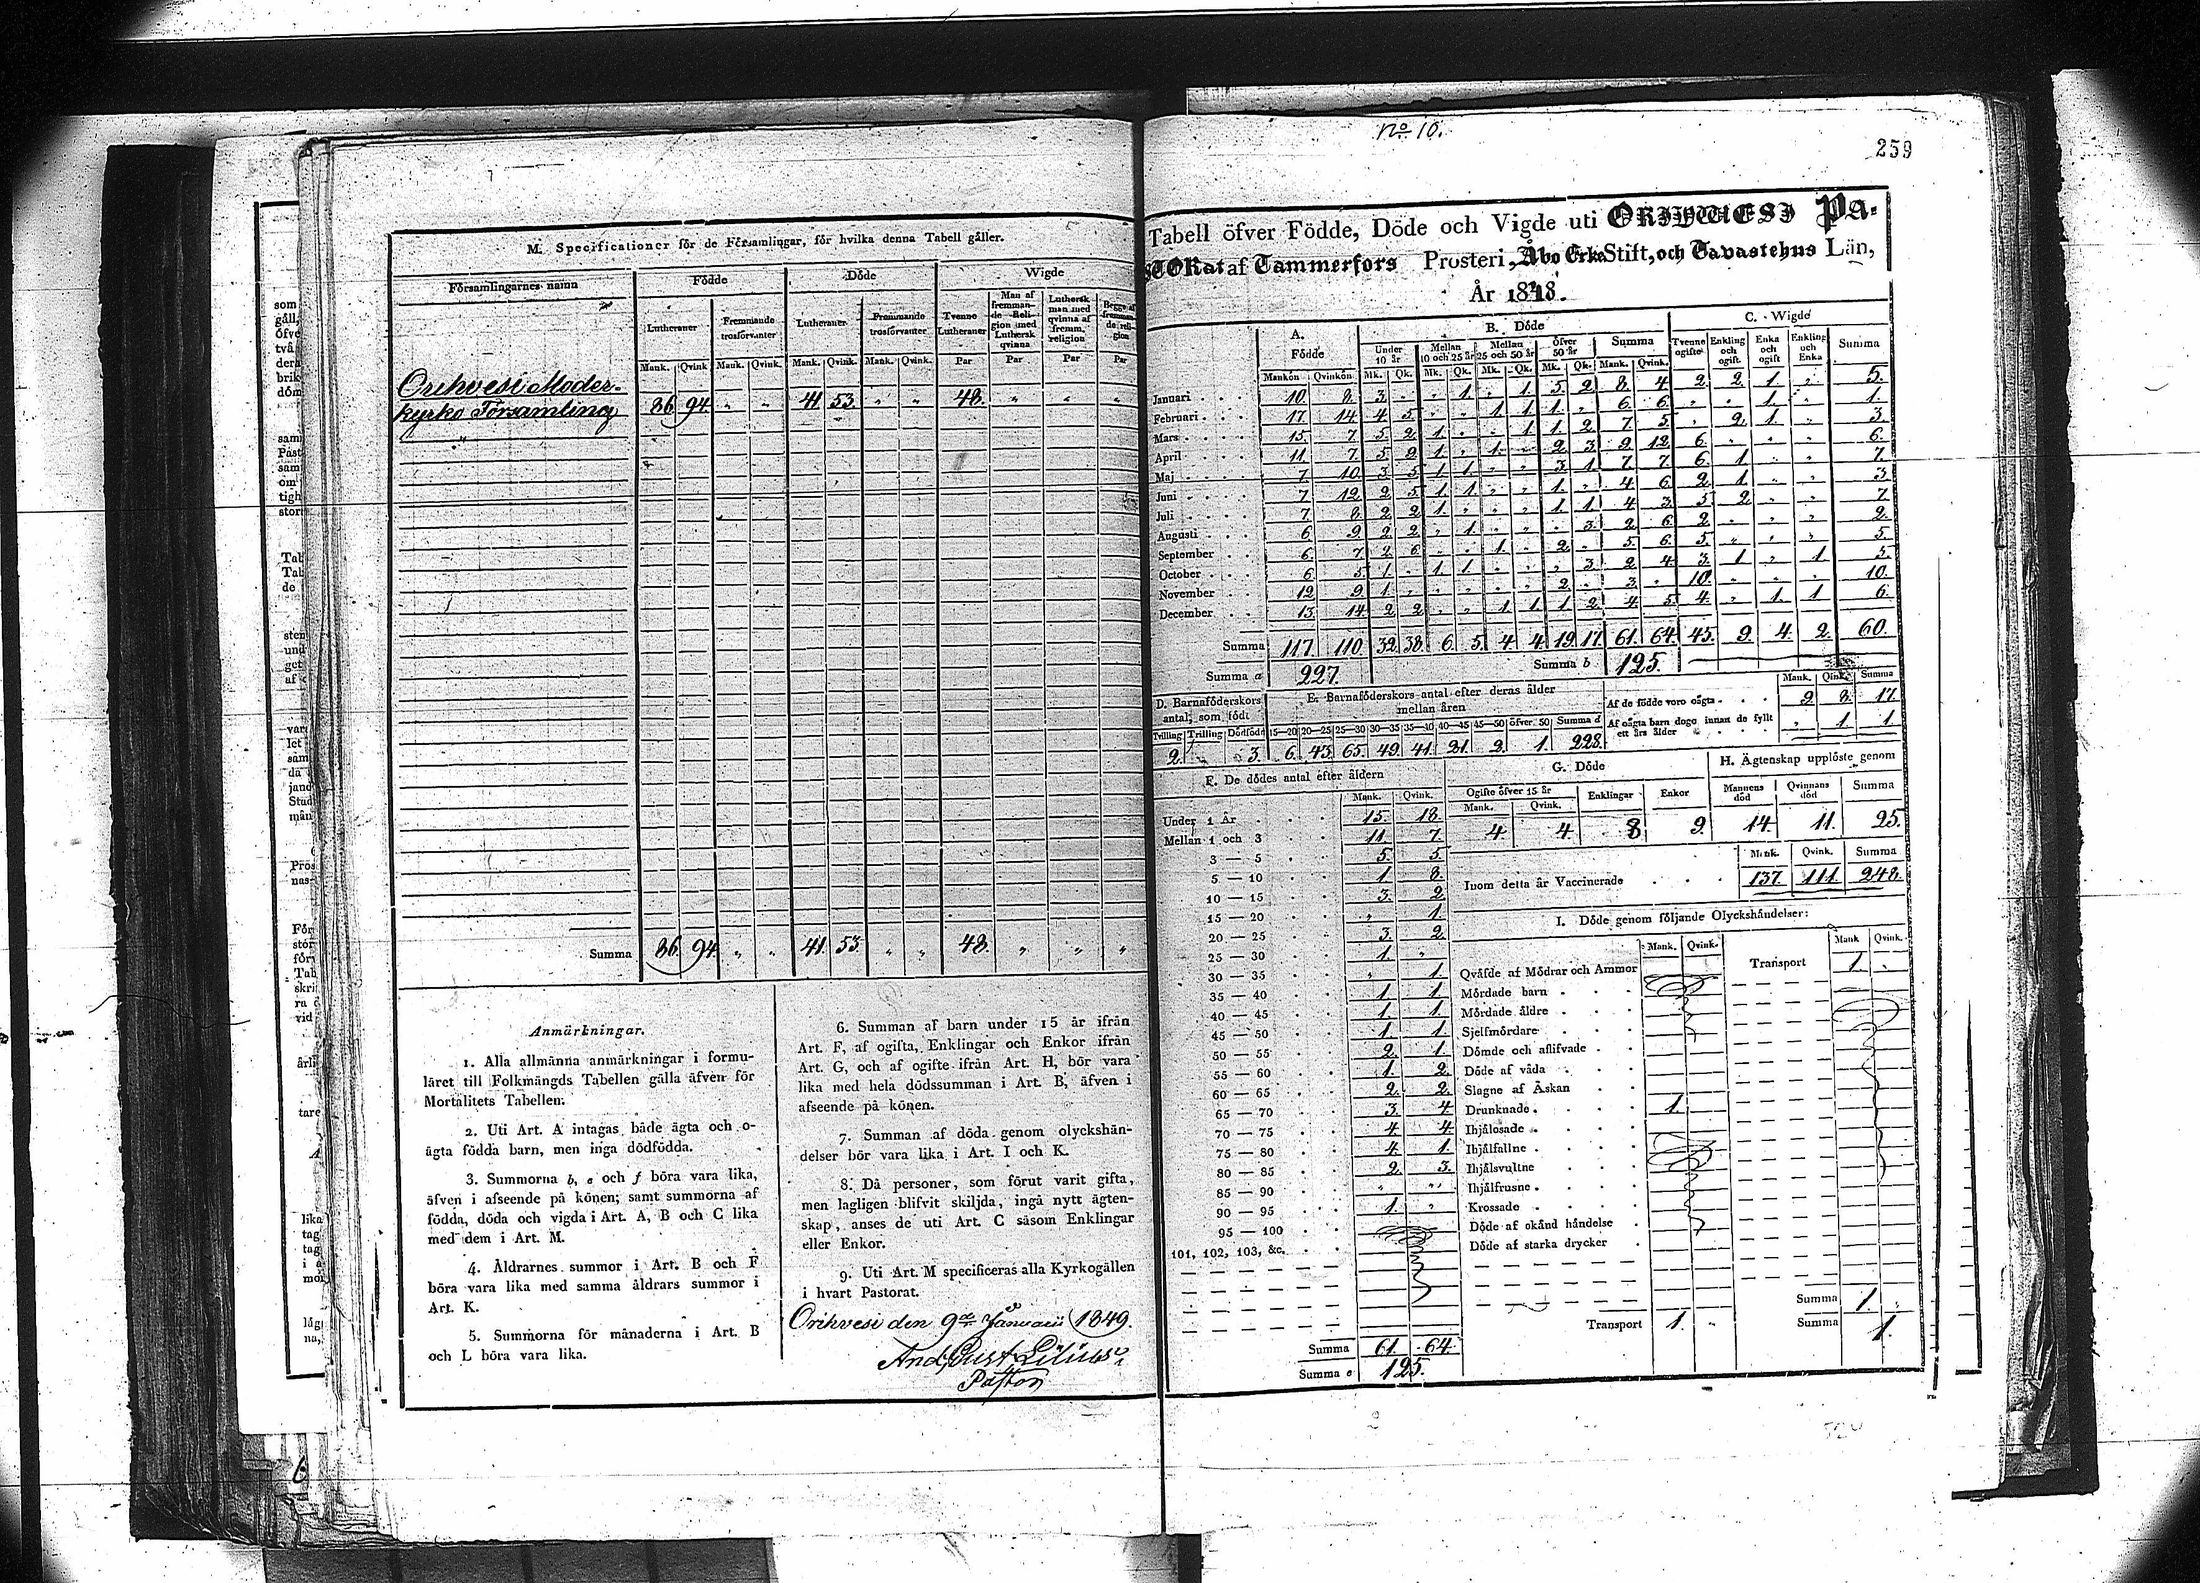 no 10.
259
M. Specificationer för de Församlingar, för hvilka denna Tabell gäller.
Församlingarnes namn
Födde
Döde
Wigde
Lutheraner
Fremmande trosförvanter
Lutheraner
Fremmande trosförvanter
Tvenne Lutheraner
Man af fremmande Religion med Luthersk qvinna
Luthersk man med qvinna af fremm. religion
Begge af fremmande religion
Mank. Qvink Mank. Qvink. Mank. Qvink. Mank. Qvink. Par Par Par Par
Orihvesi Moder-
kyrko Församling 86 94 " " 41 53 " " 48. " " "
Summa 86 94 " " 41. 53 " " 48. " " "
Anmärkningar.
1. Alla allmänna anmärkningar i formu-
läret till Folkmängds Tabellen gälla äfven för
Mortalitets Tabellen.
2. Uti Art. A intagas både ägta och o-
ägta födda barn, men inga dödfödda.
3. Summorna b, e och f böra vara lika,
äfven i afseende på könen; samt summorna af
födda, döda och vigda i Art. A, B och C lika
med dem i Art. M.
4. Åldrarnes summor i Art. B och F
böra vara lika med samma åldrars summor i
Art. K.
5. Summorna för månaderna i Art. B
och L böra vara lika.
6. Summan af barn under 15 år ifrån
Art. F, af ogifta, Enklingar och Enkor ifrån
Art. G, och af ogifte ifrån Art. H, bör vara
lika med hela dödssumman i Art. B, äfven i
afseende på könen.
7. Summan af döda genom olyckshän-
delser bör vara lika i Art. I och K.
8. Då personer, som förut varit gifta,
men lagligen blifvit skiljda, ingå nytt ägten-
skap, anses de uti Art. C såsom Enklingar
eller Enkor.
9. Uti Art. M specificeras alla Kyrkogällen
i hvart Pastorat.
Orihvesi den 9de Januarii 1849.
And. Gust. Lilius
Pastor
Tabell öfver Födde, Döde och Vigde uti ORIHWESI Pa-
STORat af Tammerfors Prosteri, Åbo Erke Stift, och Tavastehus Län,
År 1848.
A. Födde
B. Döde
C. Wigde
Under 10 år
Mellan 10 och 25 år
Mellan 25 och 50 år
Öfver 50 år
Summa
Tvenne ogifte
Enkling och ogift
Enka och ogift
Enkling och Enka
Summa
Mankön Qvinkön Mk. Qk. Mk. Qk. Mk. Qk. Mk. Qk. Mank. Qvink.
Januari 10. 8. 3. " " 1. " 1. 5. 2. 8. 4. 2. 2. 1. " 5.
Februari 17. 14. 4. 5. " " 1. 1. 1. " 6. 6. " " 1. " 1.
Mars 15. 7. 5. 2. 1. " " 1. 1. 2. 7. 5. " 2. 1. " 3.
April 11. 7. 5. 9. 1. " 1. " 2. 3. 9. 12. 6. " " " 6.
Maj 7. 10. 3. 5. 1. 1. " " 3. 1. 7. 7. 6. 1. " " 7.
Juni 7. 12. 2. 5. 1. 1. " " 1. " 4. 6. 2. 1. " " 3.
Juli 7. 8. 2. 2. 1. " " " 1. 1. 4. 3. 5. 2. " " 7.
Augusti 6. 9. 2. 2. " 1. " " " 3. 2. 6. 2. " " " 2.
September 6. 7. 2. 6. " " 1. " 2. " 5. 6. 5. " " " 5.
October 6. 5. 1. " 1. 1. " " " 3. 2. 4. 3. 1. " 1. 5.
November 12. 9. 1. " " " " " 2. " 3. " 10. " " " 10.
December 13. 14. 2. 2. " " 1. 1. 1. 2. 4. 5. 4. " 1. 1. 6.
Summa 117. 110. 32. 38. 6. 5. 4. 4. 19. 17. 61. 64. 45. 9. 4. 2. 60.
Summa a 227.
Summa b 125.
D. Barnaföderskors antal, som födt
Tvilling Trilling Dödfödt
2. " 3.
E. Barnaföderskors antal efter deras ålder mellan åren
15—20 20—25 25—30 30—35 35—40 40—45 45—50 öfver 50 Summa d
6. 43. 65. 49. 41. 21. 2. 1. 228.
Mank. Qvink. Summa
Af de födde voro oägta 9. 8. 17.
Af oägta barn dogo innan de fyllt
ett års ålder " 1. 1.
F. De dödes antal efter åldern
Mank. Qvink.
Under 1 År 15. 18.
Mellan 1 och 3 11. 7.
3 — 5 5. 5.
5 — 10 1. 8.
10 — 15 3. 2.
15 — 20 " 1.
20 — 25 3. 2.
25 — 30 1. "
30 — 35 " 1.
35 — 40 1. 1.
40 — 45 1. 1.
45 — 50 1. 1.
50 — 55 2. 1.
55 — 60 1. 2.
60 — 65 2. 2.
65 — 70 3. 4.
70 — 75 4. 4.
75 — 80 4. 1.
80 — 85 2. 3.
85 — 90 " "
90 — 95 1. "
95 — 100
101, 102, 103, &c.
Summa 61. 64.
Summa e 125.
G. Döde
Ogifte öfver 15 år
Mank. Qvink. Enklingar Enkor
4. 4. 8. 9.
H. Ägtenskap upplöste genom
Mannens död Qvinnans död Summa
14. 11. 25.
Mank. Qvink. Summa
Inom detta år Vaccinerade 137. 111. 248.
I. Döde genom följande Olyckshändelser:
Mank. Qvink.
Mank Qvink.
Transport 1. "
Qväfde af Mödrar och Ammor
Mördade barn
Mördade äldre
Sjelfmördare
Dömde och aflifvade
Döde af våda
Slagne af Åskan
Drunknade 1.
Ihjälosade
Ihjälfallne
Ihjälsvultne
Ihjälfrusne
Krossade
Döde af okänd händelse
Döde af starka drycker
Transport 1. "
Summa 1. "
Summa 1.